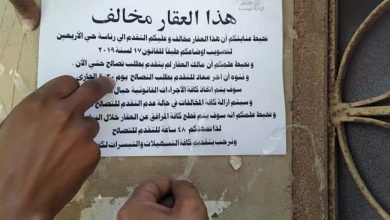 هذا العقار مخالف
نحيط عنايتكم أن هذا العقار مخالف و عليكم التقدم الي رئاسة حي الأربعين
لتصويب اوضاعكم طبقا للقانون ١٧ لسنة ٢٠١٩
و نحيط علمكم أن مالك العقار لم يتقدم بطلب تصالح حتي الآن
و ننوه أن أخر معاد للتقدم بطلب التصالح يوم ٣٠ الجاري
سوف يتم اتخاذ كافة الأجراءات القانونية حيال
و سيتم ازالة كافة المخالفات في حالة عدم التقدم للتصالح
و نحيط علمكم انه سوف يتم قطع كافة المرافق عن العقار خلال
لذا نمهلكم ٤٨ ساعة للتقدم للتصالح
ونرحب بتقديم كافة التسهيلات والتيسيرات